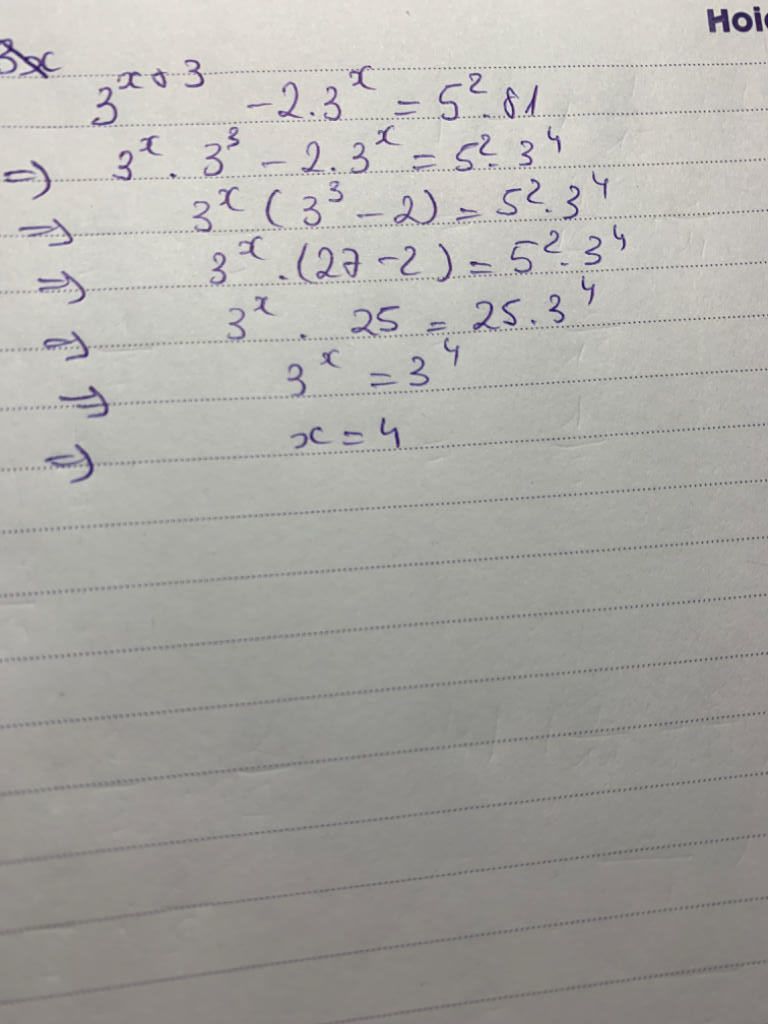 Hoi
3x
3^{x+3} - 2.3^x = 5^2.81
=> 3^x . 3^3 - 2.3^x = 5^2.3^4
=> 3^x (3^3 - 2) = 5^2.3^4
=> 3^x .(27-2) = 5^2.3^4
=> 3^x . 25 = 25.3^4
=> 3^x = 3^4
=> x = 4